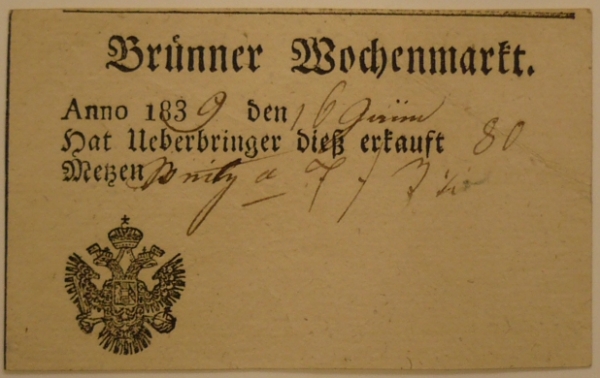 Brünner Wochenmarkt.
Anno 1839 den 16 Juni
Hat Ueberbringer dieß erkauft 80
Metzen a 7 f 3